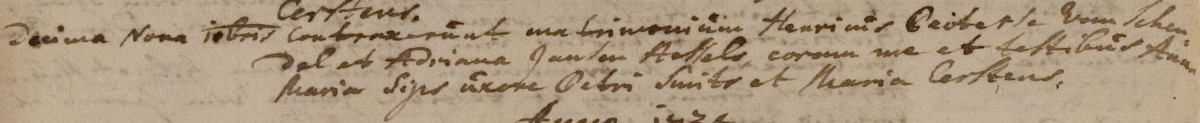 Cerstens.
Decima Nona 10bris Contraxerunt matrimonium Henricus Peiterse van Schen
del et Adriana Jansen Hessels, coram me et testibus Anna
Maria Sips uxore Petri Smits et Maria Cerstens.
Anno